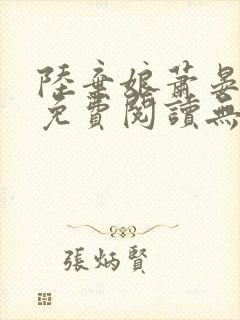 陸棄娘蕭晏
免費閱讀無
張炳賢